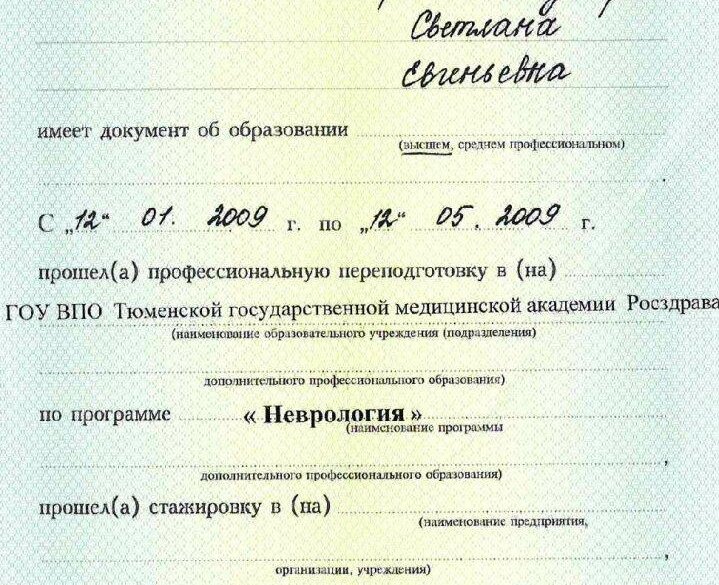 Светлана
Евгеньевна
имеет документ об образовании
(высшем, среднем профессиональном)
С „12“ 01. 2009 г. по „12“ 05. 2009 г.
прошел(а) профессиональную переподготовку в (на)
ГОУ ВПО Тюменской государственной медицинской академии Росздрава
(наименование образовательного учреждения (подразделения)
дополнительного профессионального образования)
по программе « Неврология »
(наименование программы
дополнительного профессионального образования) ,
прошел(а) стажировку в (на)
(наименование предприятия,
организации, учреждения) ,